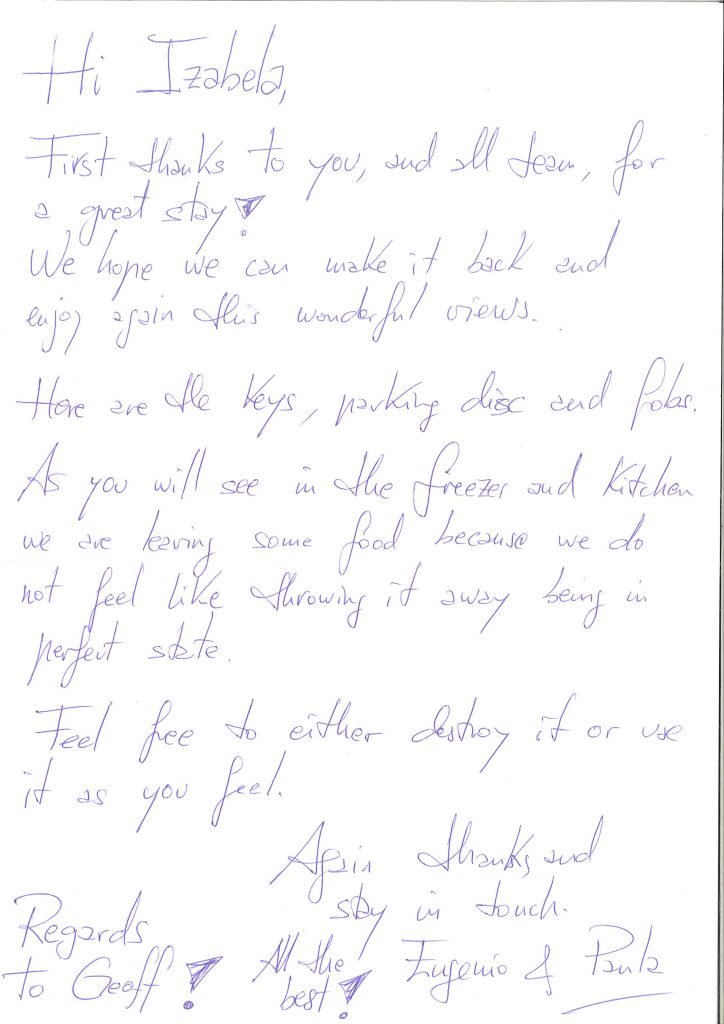 Hi Izabela,
First thanks to you, and all team, for
a great stay!
We hope we can make it back and
enjoy again this wonderful views.
Here are the keys, parking disc and fobs.
As you will see in the freezer and kitchen
we are leaving some food because we do
not feel like throwing it away being in
perfect state.
Feel free to either destroy it or use
it as you feel.
Again thanks, and
stay in touch.
Regards
to Geoff!
All the
best!
Eugenio & Paula